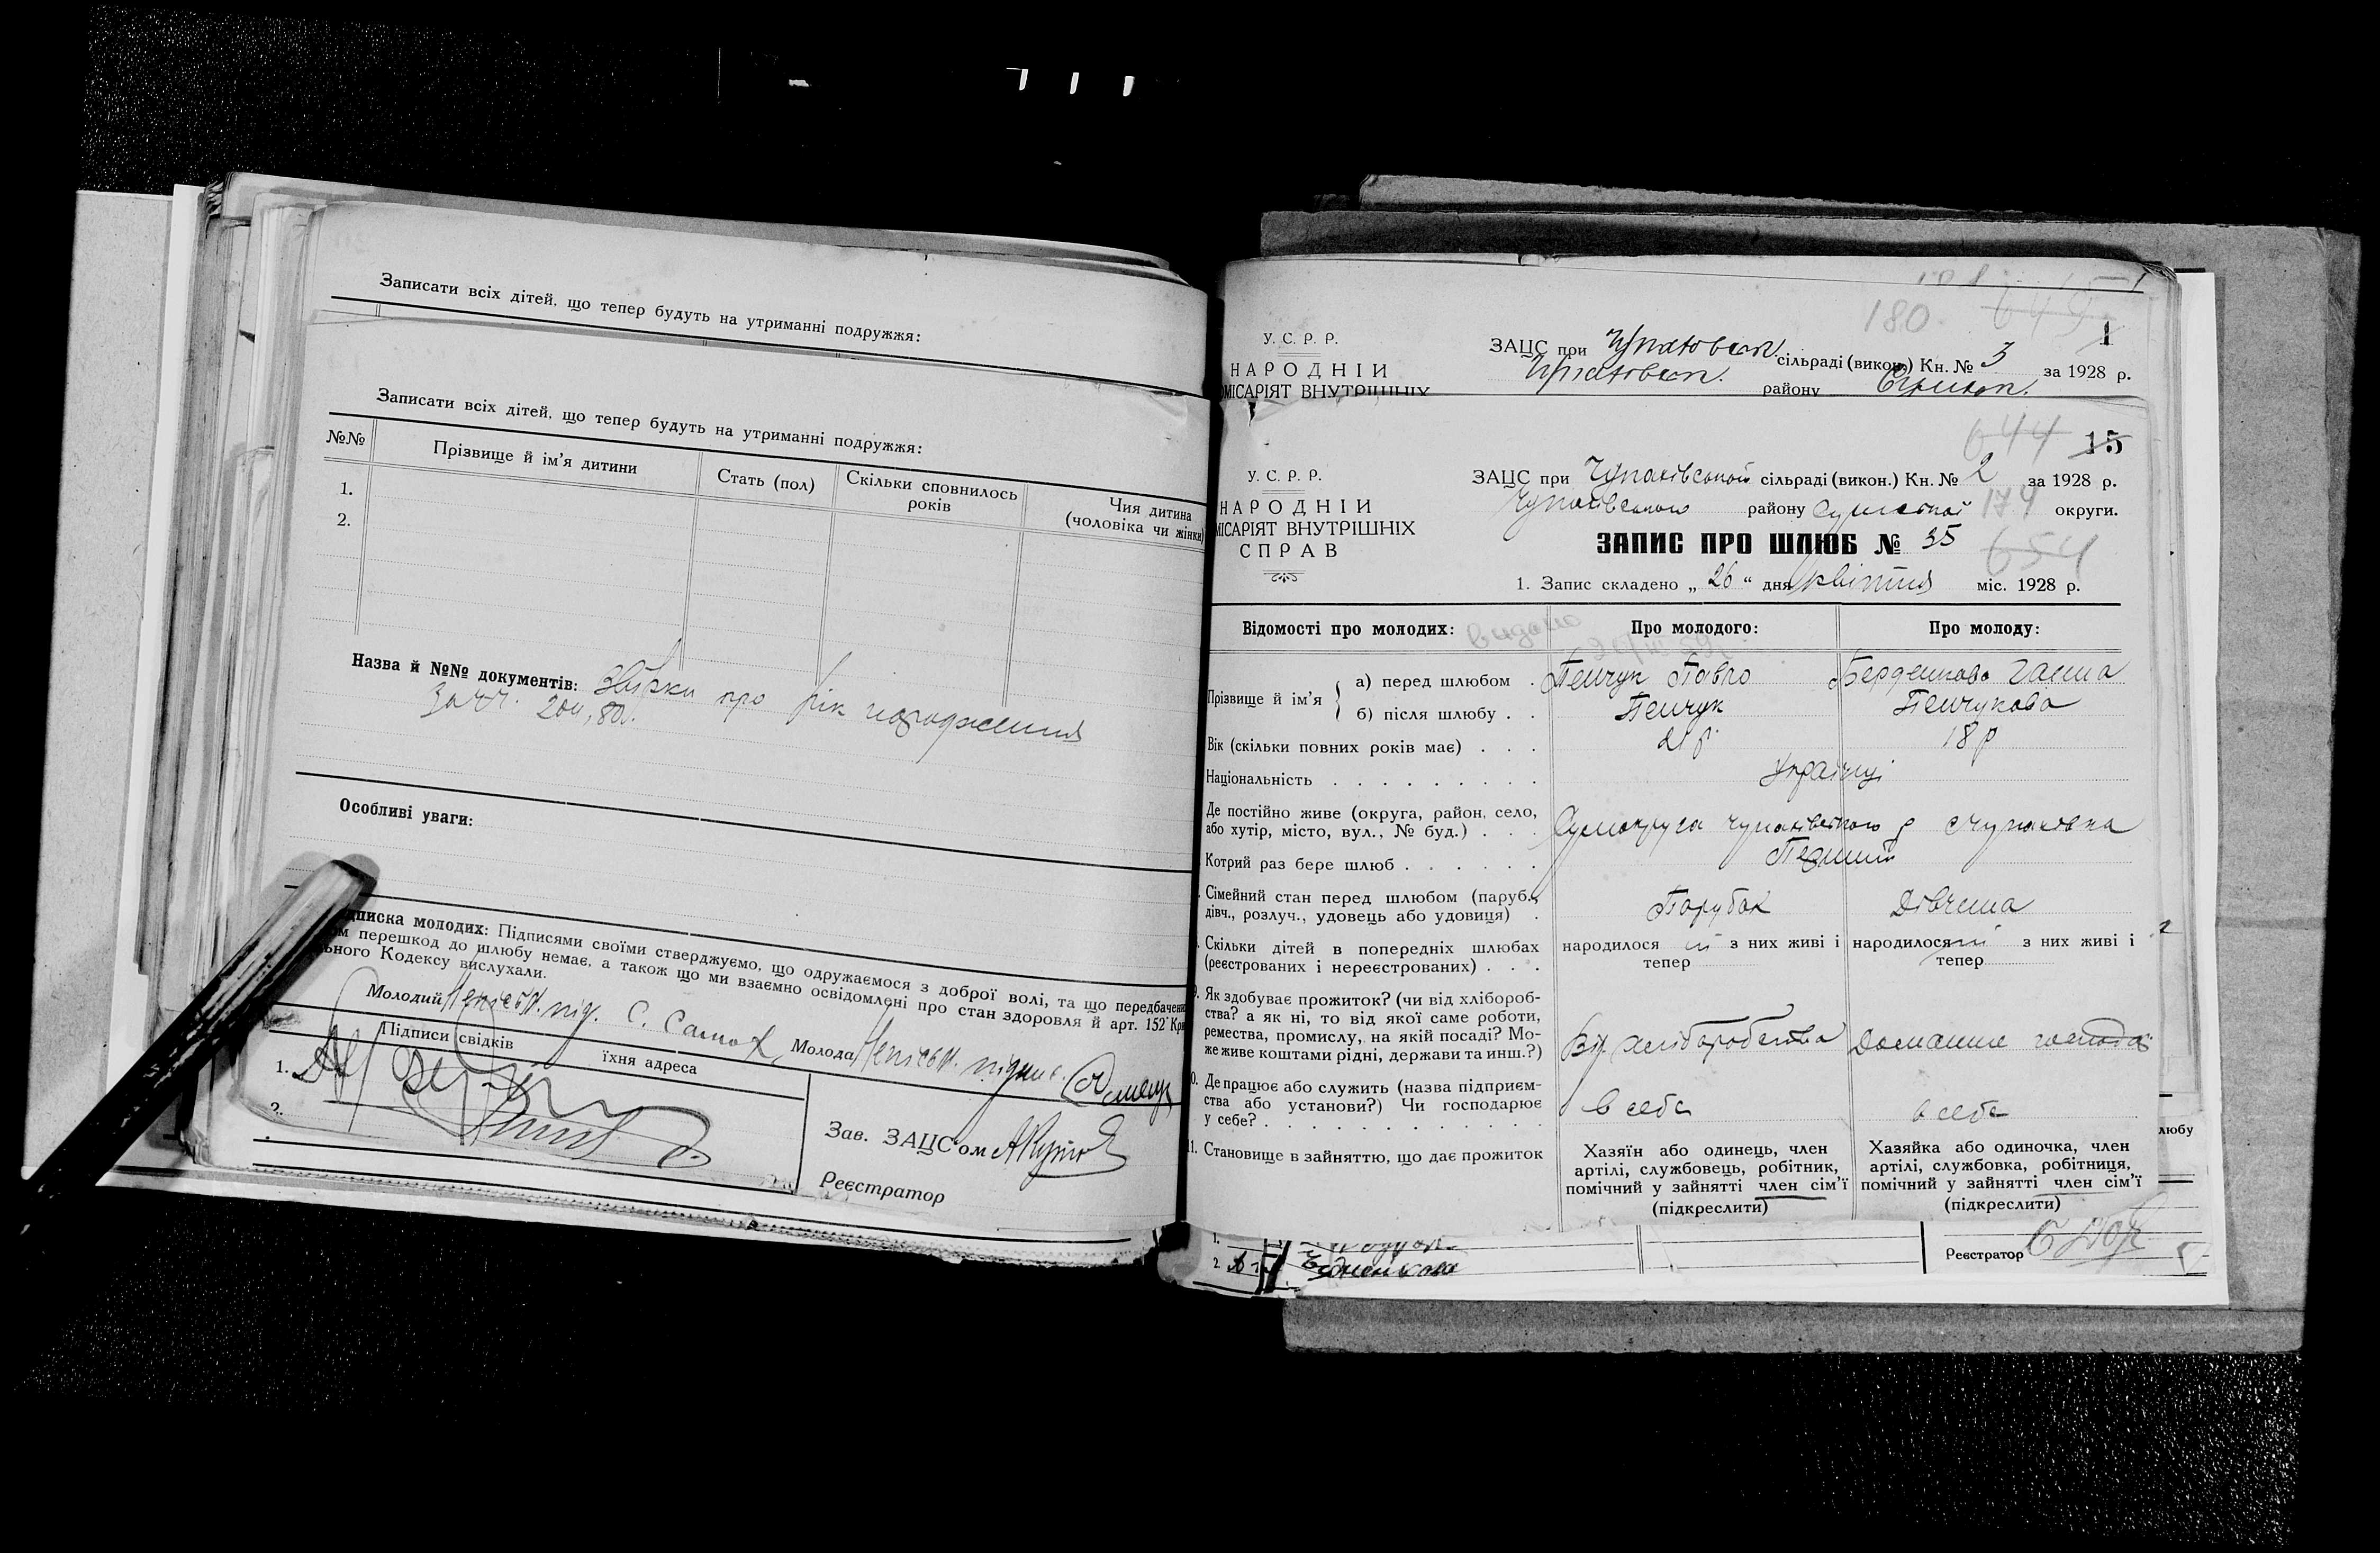 Записати всіх дітей, що тепер будуть на утриманні подружжя:
Записати всіх дітей, що тепер будуть на утриманні подружжя:
№№ Прізвище й ім'я дитини Стать (пол) Скільки сповнилось років Чия дитина (чоловіка чи жінки)
1.
2.
Назва й №№ документів: про рік
Особливі уваги:
писка молодих: Підписями своїми стверджуємо, що одружаємося з доброї волі, та що передбачени
м перешкод до шлюбу немає, а також що ми взаємно освідомлені про стан здоровля й арт. 152 Кри
ьного Кодексу вислухали.
Молодий Неписьм. під. Молода Неписьм.
Підписи свідків їхня адреса
1.
2.
Зав. ЗАЦС'ом
Реєстратор
180
У. С. Р. Р.
НАРОДНІЙ
МІСАРІЯТ ВНУТРІШНІХ
1
ЗАЦС при сільраді (викон.) Кн. № 3 за 1928 р.
району
644 15
У. С. Р. Р.
НАРОДНІЙ
МІСАРІЯТ ВНУТРІШНІХ
СПРАВ
ЗАЦС при Чупахівській сільраді (викон.) Кн. № 2 за 1928 р.
Чупахівського району Сумської 174 округи.
ЗАПИС ПРО ШЛЮБ № 35 654
1. Запис складено „ 26 “ дня квітня міс. 1928 р.
Відомості про молодих: видано Про молодого: Про молоду:
Прізвище й ім'я а) перед шлюбом . Пенчук Павло Ганна
б) після шлюбу . . Пенчук Пенчукова
Вік (скільки повних років має) . . . 21 р. 18 р
Національність . . . . . . . . . Українці
Де постійно живе (округа, район, село,
або хутір, місто, вул., № буд.) . . . Сумокруга Чупахівського р с Чупахівка
Котрий раз бере шлюб . . . . . . Перший
Сімейний стан перед шлюбом (паруб.,
дівч., розлуч., удовець або удовиця) . Парубок Дівчина
Скільки дітей в попередніх шлюбах
(реєстрованих і нереєстрованих) . . . народилося ні з них живі і тепер народилося ні з них живі і тепер
9. Як здобуває прожиток? (чи від хлібороб-
ства? а як ні, то від якої саме роботи,
ремества, промислу, на якій посаді? Мо-
же живе коштами рідні, держави та инш.?) Від хліборобства Домашнє
0. Де працює або служить (назва підприєм-
ства або установи?) Чи господарює
у себе? . . . . . . . . . . . . в себе в себе
1. Становище в зайняттю, що дає прожиток
Хазяїн або одинець, член
артілі, службовець, робітник,
помічний у зайнятті член сім'ї
(підкреслити)
Хазяйка або одиночка, член
артілі, службовка, робітниця,
помічний у зайнятті член сім'ї
(підкреслити)
любу
1.
2.
Реєстратор